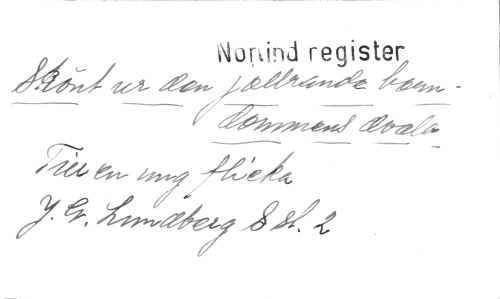 Nomind register
Skönt ur den jollrande barn-
dommens dvala
Till en ung flicka
J. G. Lundberg 8 st. 2